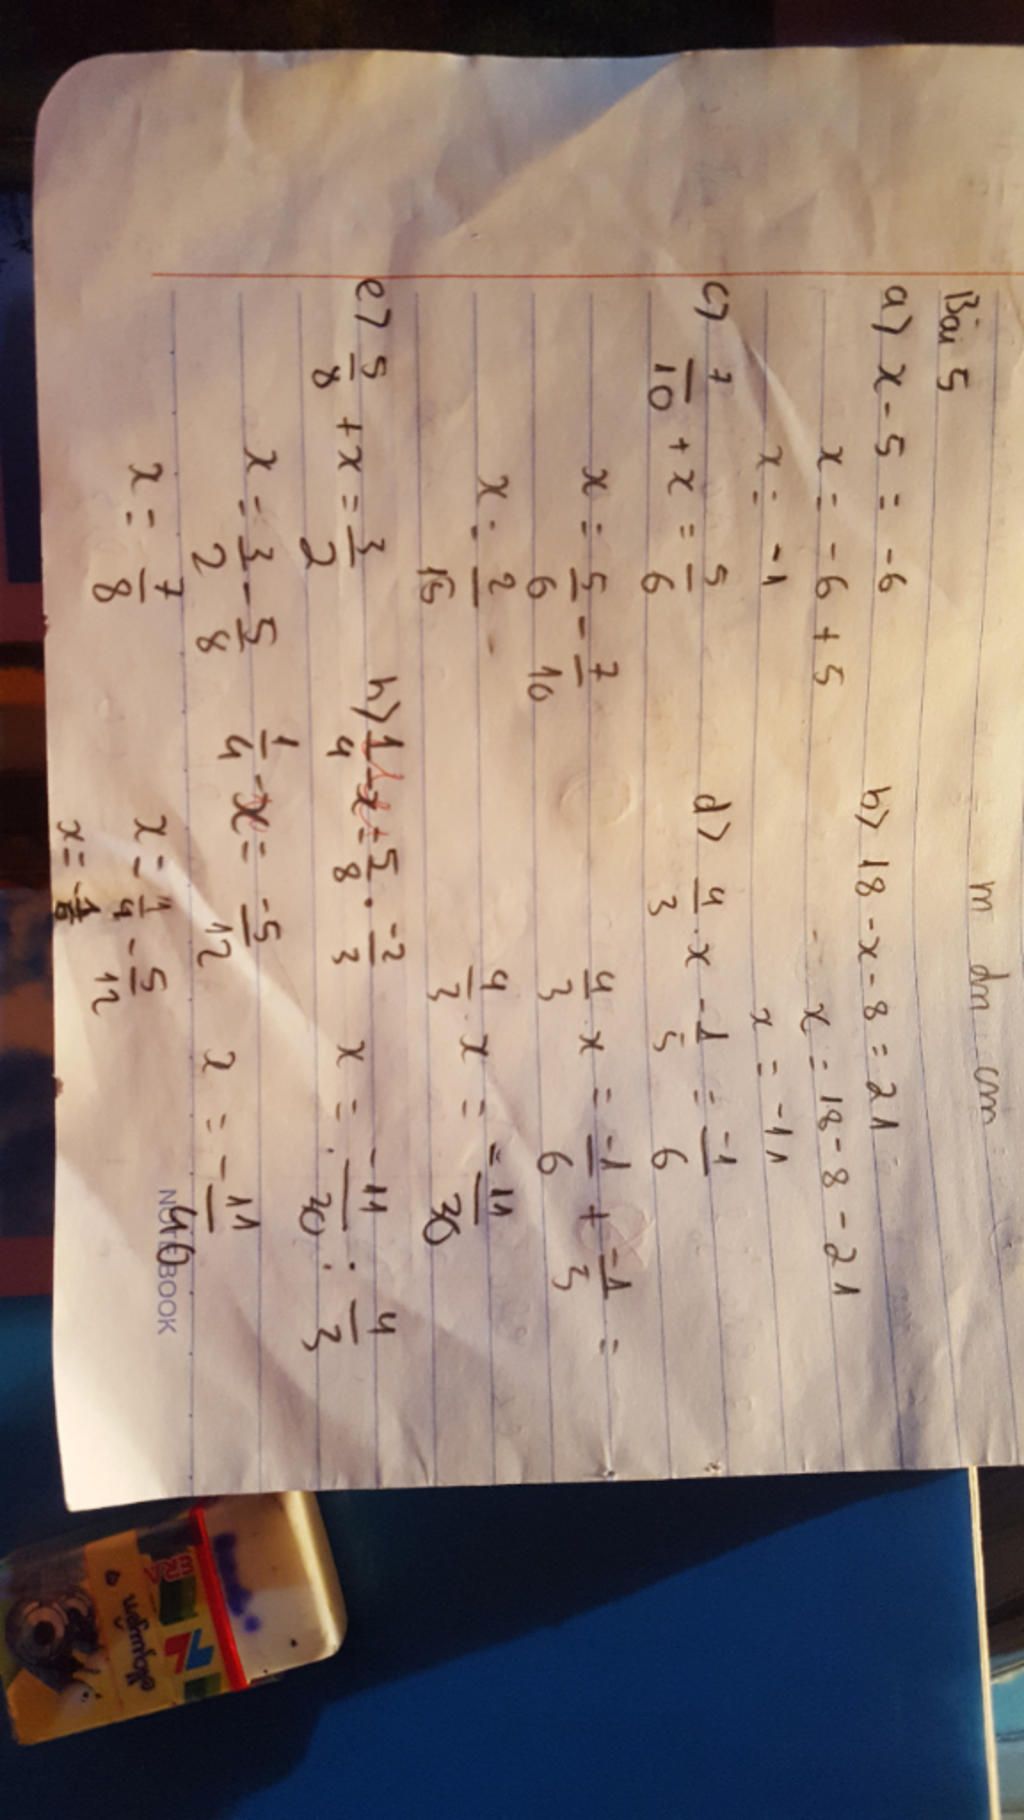 m dm cm
Bài 5
a) x - 5 = -6
x = -6 + 5
x = -1
b) 18 - x - 8 = 21
x = 18 - 8 - 21
x = -11
c) 7/10 + x = 5/6
x = 5/6 - 7/10
x = 2/15
d) 4/3 . x - 1/5 = -1/6
4/3 x = -1/6 + -1/5 =
4/3 . x = -11/30
x = -11/30 : 4/3
x = -11/40
e) 5/8 + x = 3/2
x = 3/2 - 5/8
x = 7/8
h) 1/4 - x = 5/8 . -2/3
1/4 - x = -5/12
x = 1/4 - 5/12
x = -1/6
NOTEBOOK
ERA
Nguyên